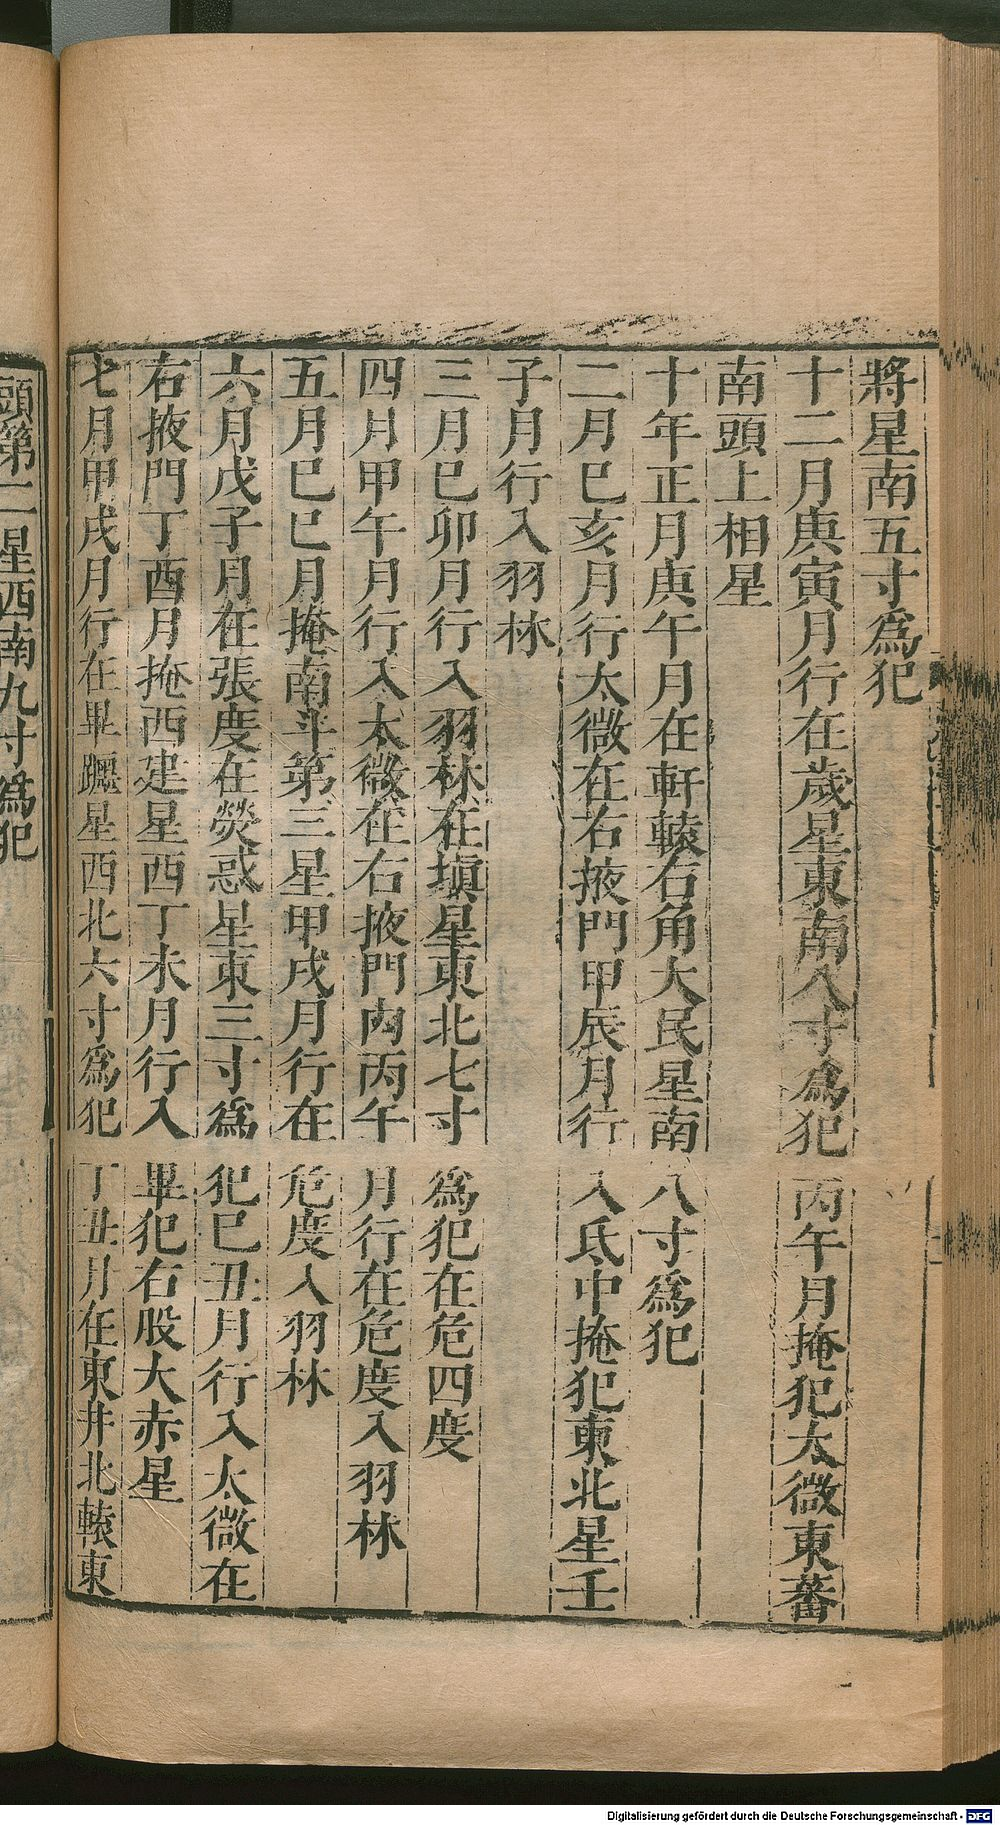 將星南五寸爲犯
十二月庚寅月行在歲星東南八寸爲犯丙午月掩犯太微東蕃
南頭上相星
十年正月庚午月在軒轅右角大民星南八寸爲犯
二月巳亥月行太微在右掖門甲辰月行入氐中掩犯東北星壬
子月行入羽林
三月巳卯月行入羽林在塡星東北七寸爲犯在危四度
四月甲午月行入太微在右掖門內丙午月行在危度入羽林
五月巳巳月掩南斗第三星甲戌月行在危度入羽林
六月戊子月在張度在熒惑星東三寸爲犯巳丑月行入太微在
右掖門丁酉月掩西建星西丁未月行入畢犯右股大赤星
七月甲戌月行在畢躔星西北六寸爲犯丁丑月在東井北轅東
頭第二星西南九寸爲犯
Digitalisierung gefördert durch die Deutsche Forschungsgemeinschaft - DFG